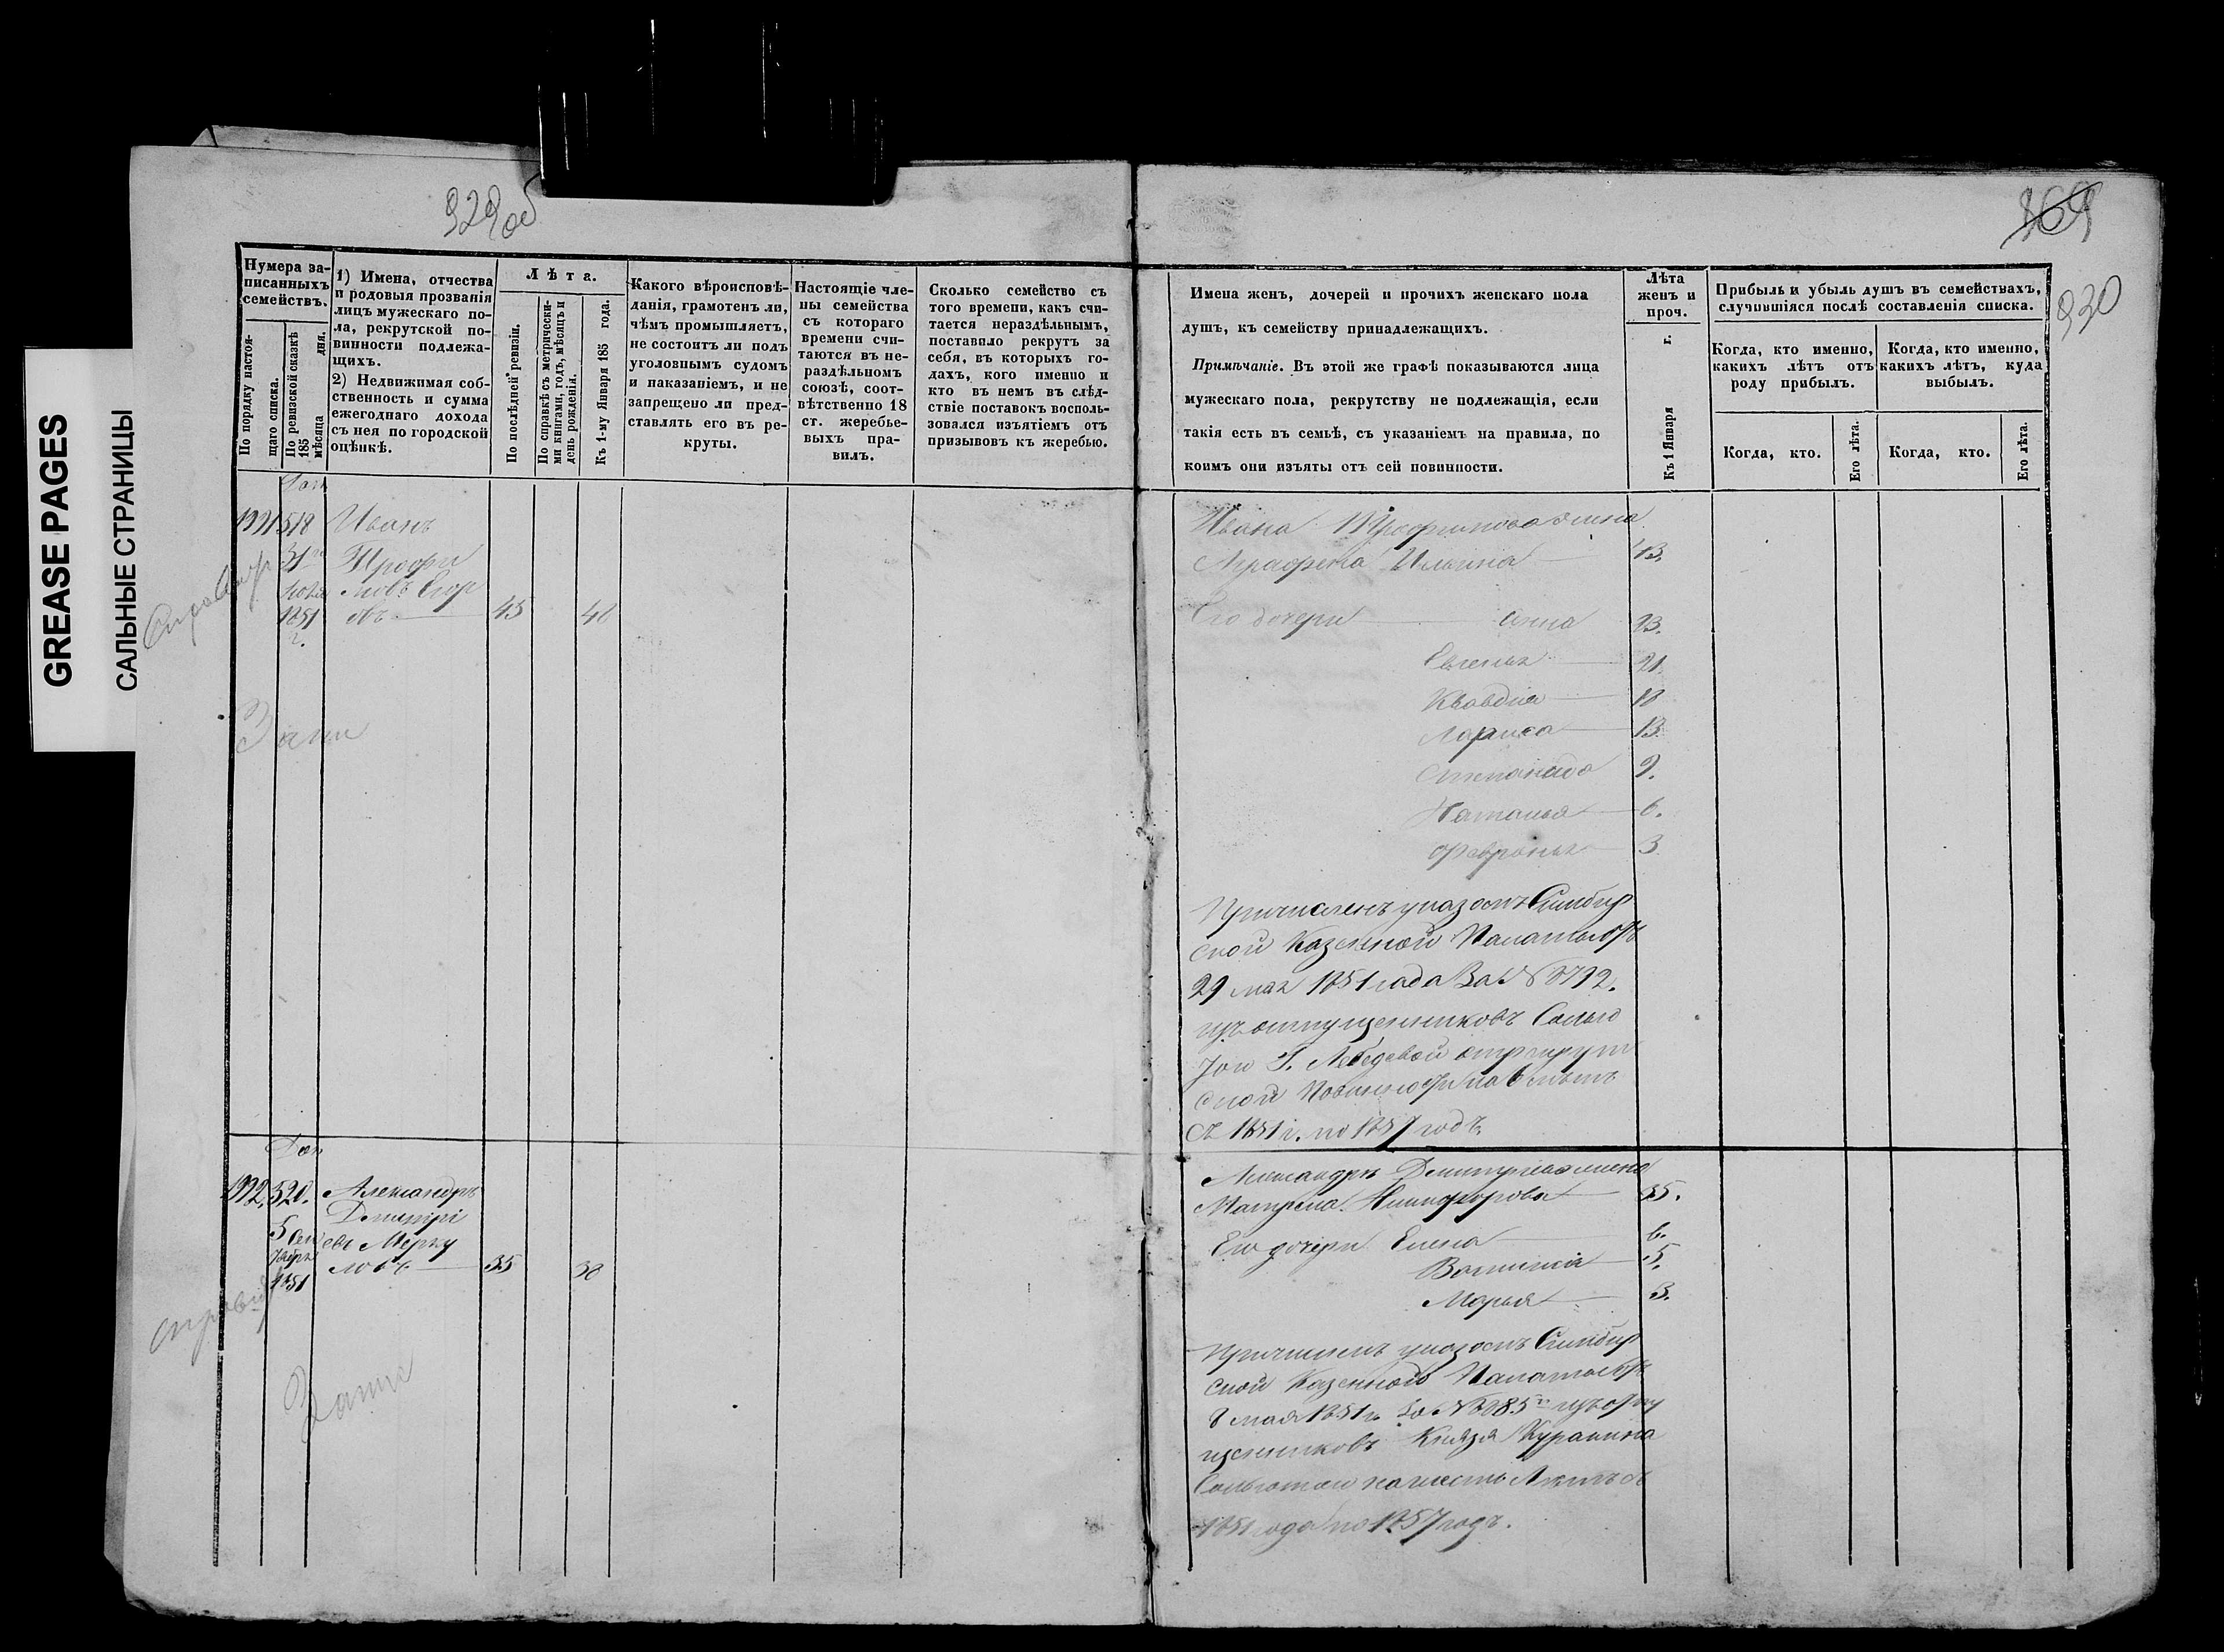 GREASE PAGES
САЛЬНЫЕ СТРАНИЦЫ
929об
169
930
Нумера за-
писанныхъ
семействъ.
По порядку настоя-
щаго списка.
По ревизской сказкѣ
185 дня.
мѣсяца
1) Имена, отчества
и родовыя прозванія
лицъ мужескаго по-
ла, рекрутской по-
винности подлежа-
щихъ.
2) Недвижимая соб-
ственность и сумма
ежегоднаго дохода
съ нея по городской
оцѣнкѣ.
Лѣта.
По послѣдней ревизіи.
По справкѣ съ метрически-
ми книгами, годъ, мѣсяцъ и
день рожденія.
Къ 1-му Января 185 года.
Какого вѣроисповѣ-
данія, грамотенъ ли,
чѣмъ промышляетъ,
не состоитъ ли подъ
уголовнымъ судомъ
и наказаніемъ, и не
запрещено ли пред-
ставлять его въ ре-
круты.
Настоящіе чле-
ны семейства
съ котораго
времени счи-
таются въ не-
раздѣльномъ
союзѣ, соот-
вѣтственно 18
ст. жеребье-
выхъ пра-
вилъ.
Сколько семейство съ
того времени, какъ счи-
тается нераздѣльнымъ,
поставило рекрутъ за
себя, въ которыхъ го-
дахъ, кого именно и
кто въ немъ въ слѣд-
ствіе поставокъ восполь-
зовался изъятіемъ отъ
призывовъ къ жеребью.
Имена женъ, дочерей и прочихъ женскаго пола
душъ, къ семейству принадлежащихъ.
Примѣчаніе. Въ этой же графѣ показываются лица
мужескаго пола, рекрутству не подлежащія, если
такія есть въ семьѣ, съ указаніемъ на правила, по
коимъ они изъяты отъ сей повинности.
Лѣта
женъ и
проч.
Къ 1 Января г.
Прибыль и убыль душъ въ семействахъ,
случившіяся послѣ составленія списка.
Когда, кто именно,
какихъ лѣтъ отъ
роду прибылъ.
Когда, кто именно,
какихъ лѣтъ, куда
выбылъ.
Когда, кто.
Его лѣта.
Когда, кто.
Его лѣта.
Иванъ
Трофи
мовъ Егор
овъ 45 48
1851
г.
Ивана Трофимова жена
Аграфена Ильина 43.
Его дочери Анна 23.
Евгенья 21.
Клавдия 18
Лариса 13
Степанида 9.
Наталья 6.
Февронья 3
Причисленъ указомъ Симбир
ской Казенной Палаты отъ
29 мая 1851 года За №
изъ отпущенниковъ Сольго
той Г. Лебедевой отрекрут
ской Повинности на 6 лѣтъ
съ 1851 г. по 1857 годъ.
1992. 520. Александръ
Дмитрі
евъ Мерку
ловъ 35 38
5 Сен
тября
1851
Александра Дмитриева жена
Матрена Никифорова 35.
Его дочери Елена 6.
5.
Марья 3.
Причисленъ указомъ Симбир
ской Казенной Палаты отъ
8 мая 1851 г. за № изъ отпу
щенниковъ Князя Куракина
Сольготою на шесть Лѣтъ съ
1851 года по 1857 годъ.